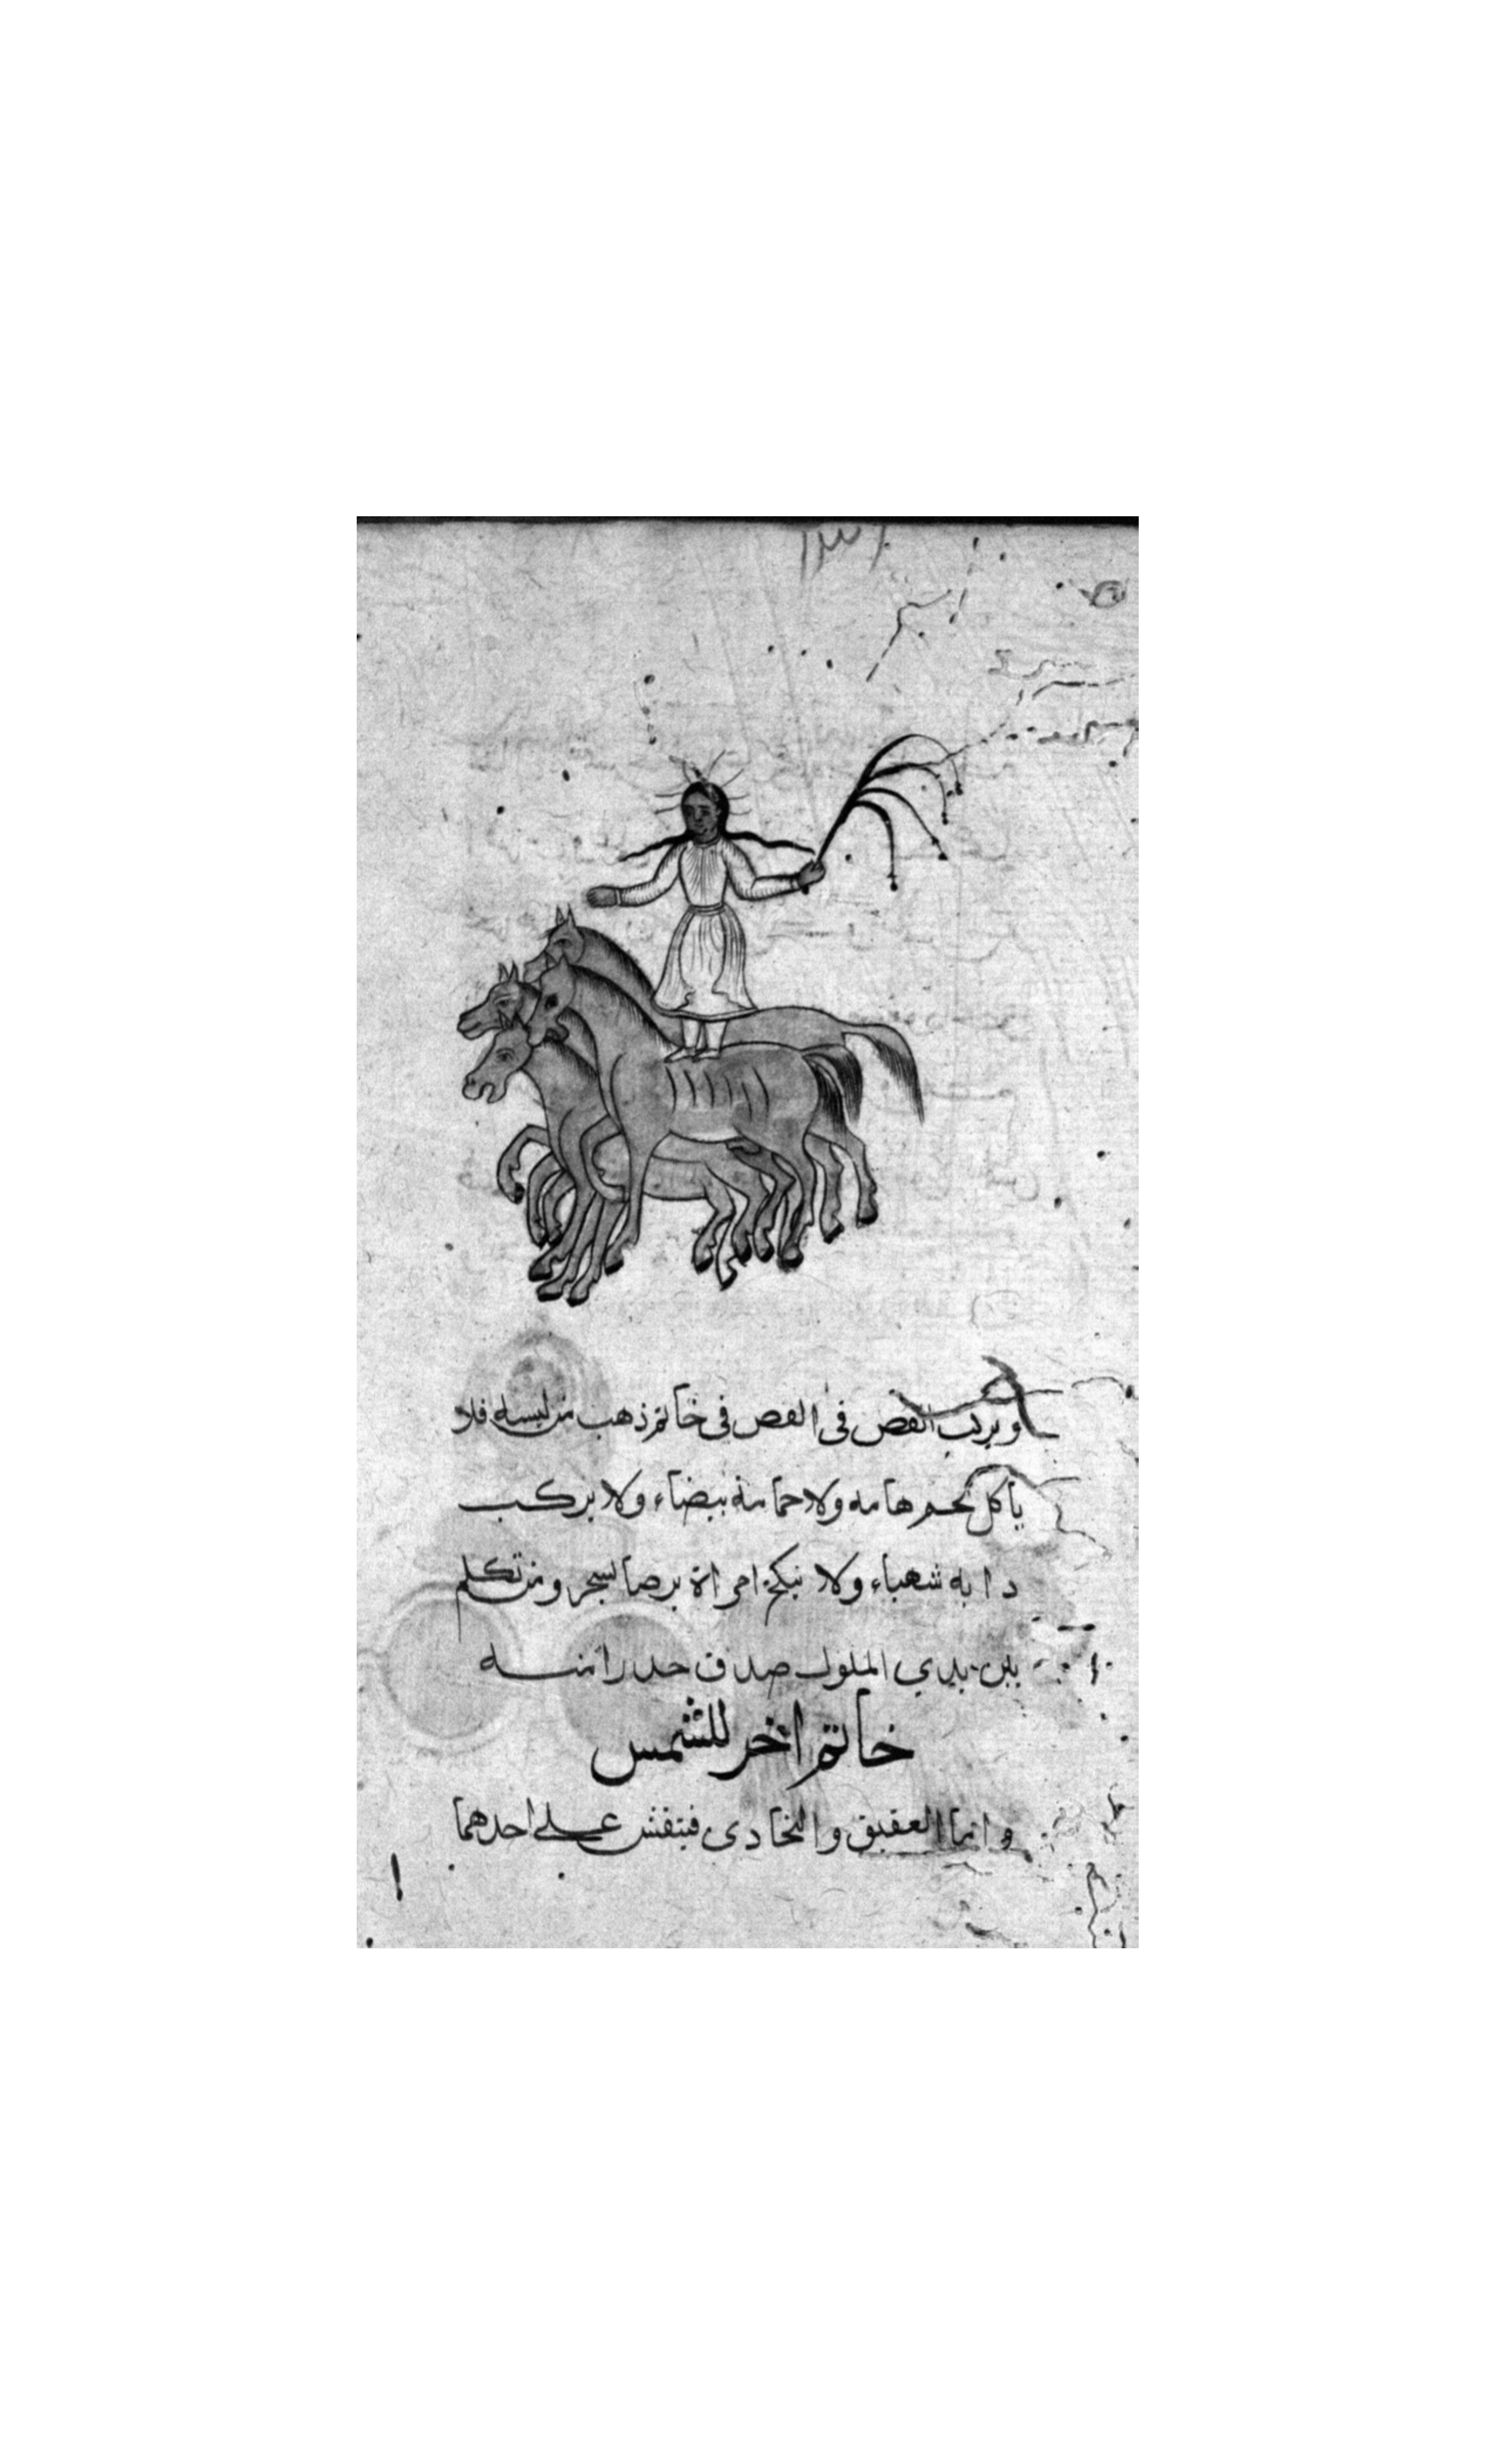 ١٣٧
ويركب الفص في الفص في خاتم ذهب من لبسه فلا
ياكل لحم هامه ولا حمامة بيضاء ولا يركب
دابه شهباء ولا ينكح امراة برصا لسحر ومن تكلم
بين يدي الملوك صدق حدرا منه
خاتم اخر للشمس
واما العقيق والنجادى فينقش على احدهما